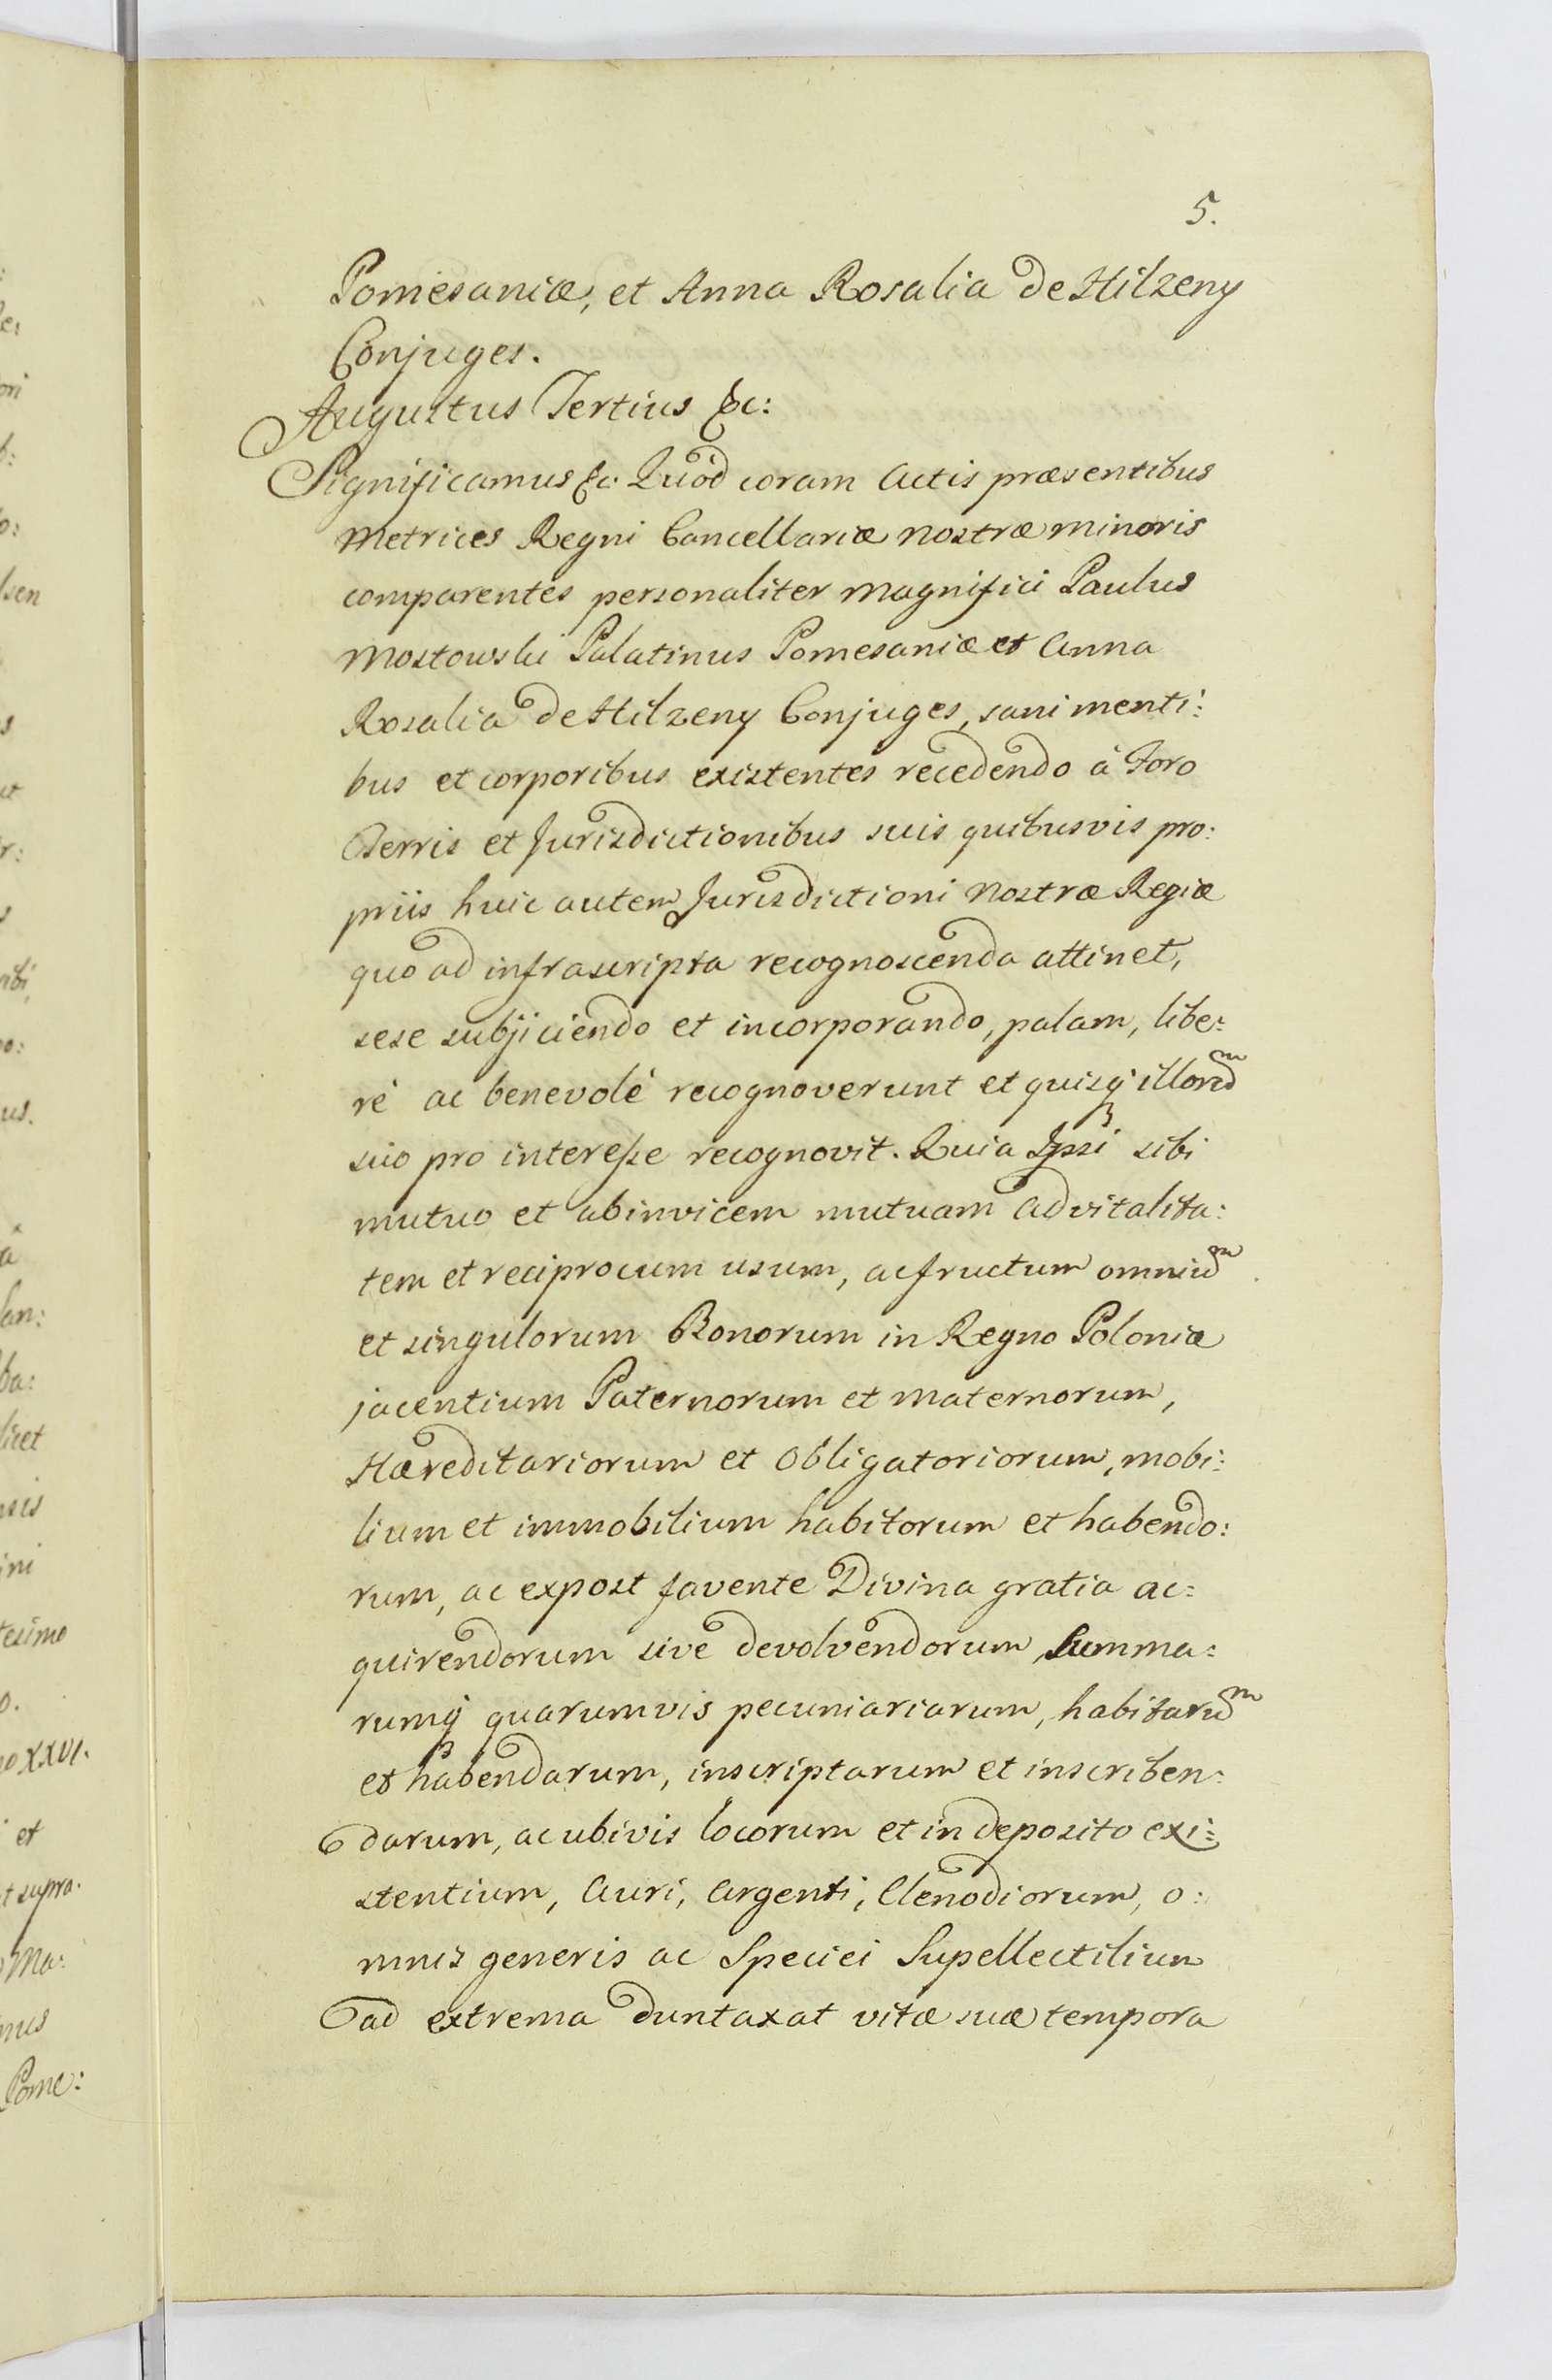 5.
Pomesaniæ, et Anna Rosalia de Hilzeny
Conjuges.
Augustus Tertius &c:
Significamus &c: Quòd coram Actis præsentibus
Metrices Regni Cancellariæ Nostræ minoris
comparentes personaliter Magnifici Paulus
Mostowski Palatinus Pomesaniæ et Anna
Rosalia de Hilzeny Conjuges, sani menti:
bus et corporibus existentes recedendo à Foro
Terris et Jurisdictionibus suis quibusvis pro:
priis huic autem Jurisdictioni Nostræ Regiæ
quo ad infrascripta recognoscenda attinet,
sese subjiciendo et incorporando, palam, libe:
rè ac benevolè recognoverunt et quisq illorum
suo pro interesse recognovit. Quia Ipsi sibi
mutuo et abinvicem mutuam advitalita:
tem et reciprocum usum, ac fructum omnium
et singulorum Bonorum in Regno Poloniæ
jacentium Paternorum et Maternorum,
Hæreditariorum et Obligatoriorum, mobi:
lium et immobilium habitorum et habendo:
rum, ac expost favente Divina gratia ac:
quirendorum sive devolvendorum, Summa:
rumq quarumvis pecuniariarum, habitarum
et habendarum, inscriptarum et inscriben:
darum, ac ubivis locorum et in deposito exi:
stentium, Auri, Argenti, Clenodiorum, o:
mnis generis ac Speciei Supellectilium
ad extrema duntaxat vitæ suæ tempora